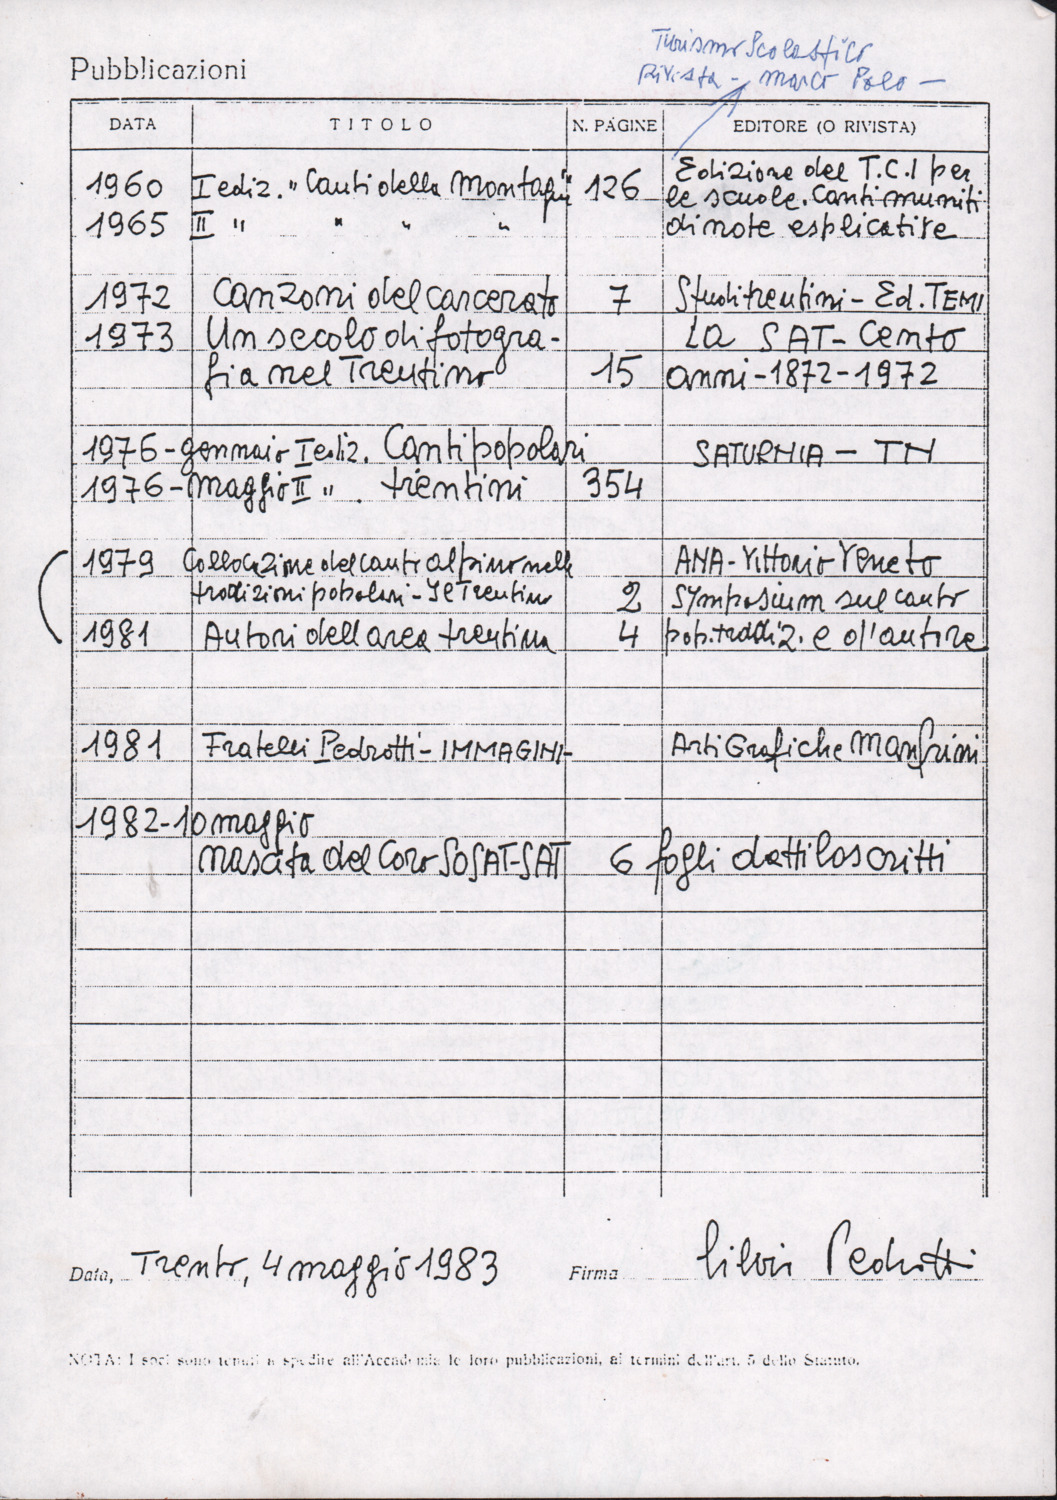 Turismo Scolastico
Rivista - Marco Polo -
Pubblicazioni
DATA TITOLO N. PAGINE EDITORE (O RIVISTA)
1960 I ediz. "Canti della Montagna" 126 Edizione del T.C.I per
le scuole. Canti muniti
1965 II " " " " di note esplicative
1972 Canzoni del carcerato 7 Studi trentini - Ed. TEMI
1973 Un secolo di fotogra- La SAT - Cento
fia nel Trentino 15 anni - 1872 - 1972
1976 - gennaio I ediz. Canti popolari SATURNIA - TN
1976 - maggio II " . trentini 354
1979 Collocazione del canto alpino nelle ANA - Vittorio Veneto
tradizioni popolari - Il Trentino 2 Symposium sul canto
1981 Autori dell area trentina 4 pop. tradiz. e d'autore
1981 Fratelli Pedrotti - IMMAGINI - Arti Grafiche Manfrini
1982 - 10 maggio
Nascita del Coro SOSAT-SAT 6 fogli dattiloscritti
Data, Trento, 4 maggio 1983 Firma Silvio Pedrotti
NOTA: I soci sono tenuti a spedire all'Accademia le loro pubblicazioni, ai termini dell'art. 5 dello Statuto.